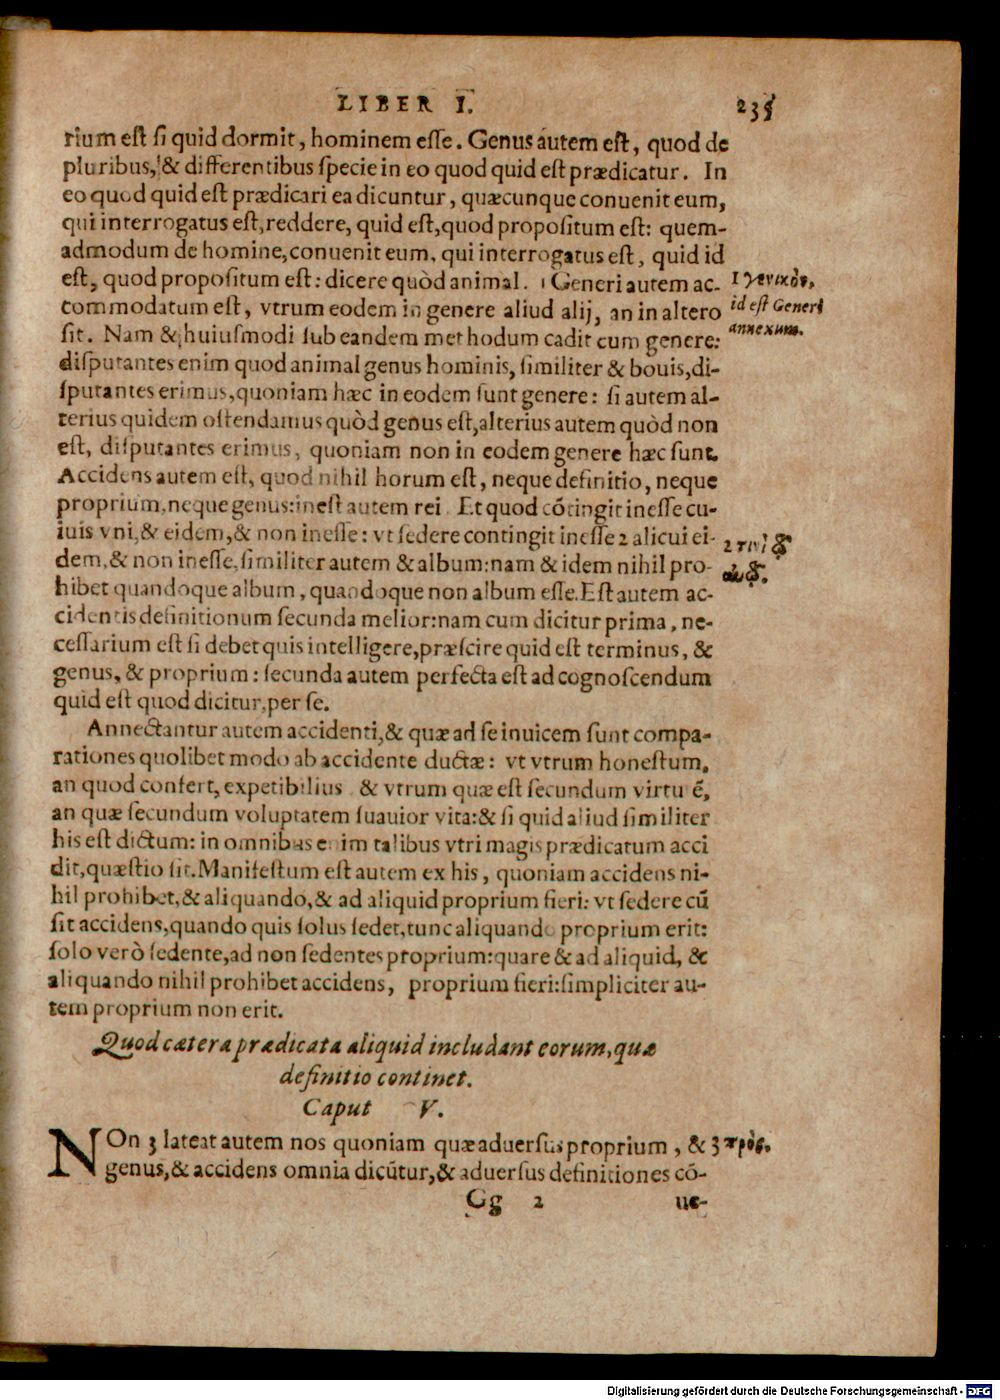 LIBER I. 235
rium est si quid dormit, hominem esse. Genus autem est, quod de
pluribus, & differentibus specie in eo quod quid est prædicatur. In
eo quod quid est prædicari ea dicuntur, quæcunque conuenit eum,
qui interrogatus est, reddere, quid est, quod propositum est: quem-
admodum de homine, conuenit eum, qui interrogatus est, quid id
est, quod propositum est: dicere quòd animal. 1 Generi autem ac-
commodatum est, vtrum eodem in genere aliud alij, an in altero
sit. Nam & huiusmodi sub eandem methodum cadit cum genere:
disputantes enim quod animal genus hominis, similiter & bouis, di-
sputantes erimus, quoniam hæc in eodem sunt genere: si autem al-
terius quidem ostendamus quòd genus est, alterius autem quòd non
est, disputantes erimus, quoniam non in eodem genere hæc sunt.
Accidens autem est, quod nihil horum est, neque definitio, neque
proprium, neque genus: inest autem rei. Et quod cōtingit inesse cu-
iuis vni, & eidem, & non inesse: vt sedere contingit inesse 2 alicui ei-
dem, & non inesse, similiter autem & album: nam & idem nihil pro-
hibet quandoque album, quandoque non album esse. Est autem ac-
cidentis definitionum secunda melior: nam cum dicitur prima, ne-
cessarium est si debet quis intelligere, præscire quid est terminus, &
genus, & proprium: secunda autem perfecta est ad cognoscendum
quid est quod dicitur, per se.
Annectantur autem accidenti, & quæ ad se inuicem sunt compa-
rationes quolibet modo ab accidente ductæ: vt vtrum honestum,
an quod confert, expetibilius & vtrum quæ est secundum virtu ē,
an quæ secundum voluptatem suauior vita: & si quid aliud similiter
his est dictum: in omnibus enim talibus vtri magis prædicatum acci
dit, quæstio sit. Manifestum est autem ex his, quoniam accidens ni-
hil prohibet, & aliquando, & ad aliquid proprium fieri: vt sedere cū
sit accidens, quando quis solus sedet, tunc aliquando proprium erit:
solo verò sedente, ad non sedentes proprium: quare & ad aliquid, &
aliquando nihil prohibet accidens, proprium fieri: simpliciter au-
tem proprium non erit.
1 γενικὸν,
id est Generi
annexum.
2 τινὶ
Quod cætera prædicata aliquid includant eorum, quæ
definitio continet.
Caput V.
NOn 3 lateat autem nos quoniam quæ aduersus proprium, &
genus, & accidens omnia dicūtur, & aduersus definitiones cō-
3 πρὸς.
Gg 2 ue-
Digitalisierung gefördert durch die Deutsche Forschungsgemeinschaft - DFG